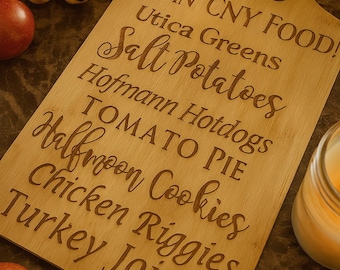 IN CNY FOOD!
Utica Greens
Salt Potatoes
Hofmann Hotdogs
TOMATO PIE
Halfmoon Cookies
Chicken Riggies
Turkey